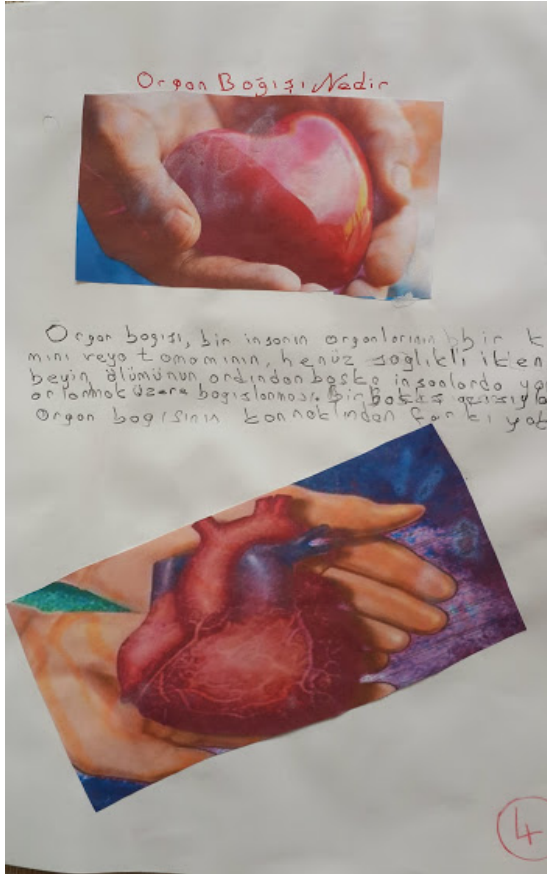 Organ Bağışı Nedir
Organ bagısı, bir insanın organlarının bbir k
mını veya tamamının, henüz sağlıkli iken
beyin ölümünun ardından baska insanlarda ya
arlanmak üzere bagıslanması. Bir bakış açısıyla
Organ bagısının kan naklinden farkı yok
4